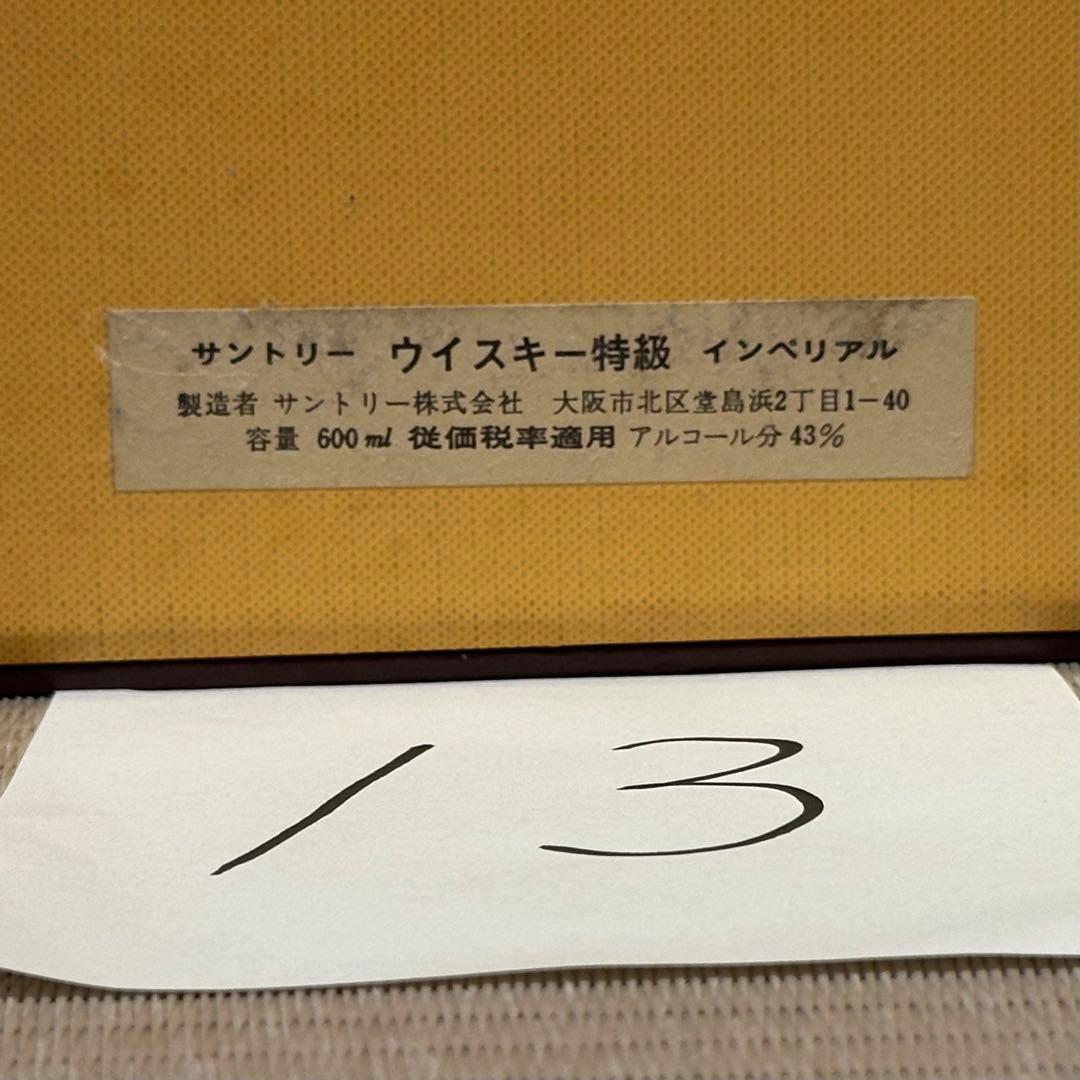 サントリー ウイスキー特級 インペリアル
製造者 サントリー株式会社 大阪市北区堂島浜2丁目1-40
容量 600ml 従価税率適用 アルコール分43%
13